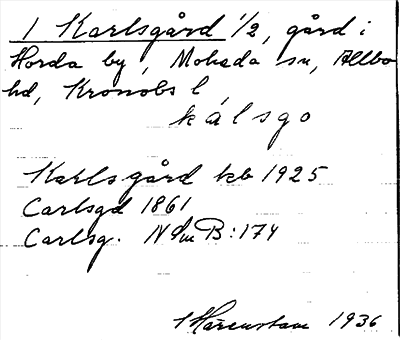 1 Karlsgård 1/2, gård i
Horda by, Moheda sn, Allbo
hd, Kronobs l,
kálsgo
Karlsgård kb 1925
Carlsgd 1861
Carlsg. NSmB:174
Härenstam 1936